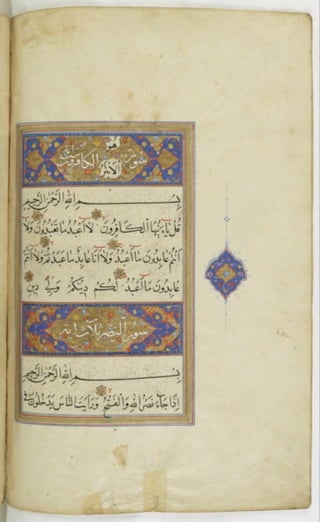 سورة الكافرون
بِسْمِ اللهِ الرَّحْمٰنِ الرَّحِيمِ
قُلْ يَا أَيُّهَا الْكَافِرُونَ لَا أَعْبُدُ مَا تَعْبُدُونَ وَلَا
أَنْتُمْ عَابِدُونَ مَا أَعْبُدُ وَلَا أَنَا عَابِدٌ مَا عَبَدْتُمْ وَلَا أَنْتُمْ
عَابِدُونَ مَا أَعْبُدُ لَكُمْ دِينُكُمْ وَلِيَ دِينِ
سورة النصر ثلاث آية
بِسْمِ اللهِ الرَّحْمٰنِ الرَّحِيمِ
إِذَا جَاءَ نَصْرُ اللهِ وَالْفَتْحُ وَرَأَيْتَ النَّاسَ يَدْخُلُونَ فِي